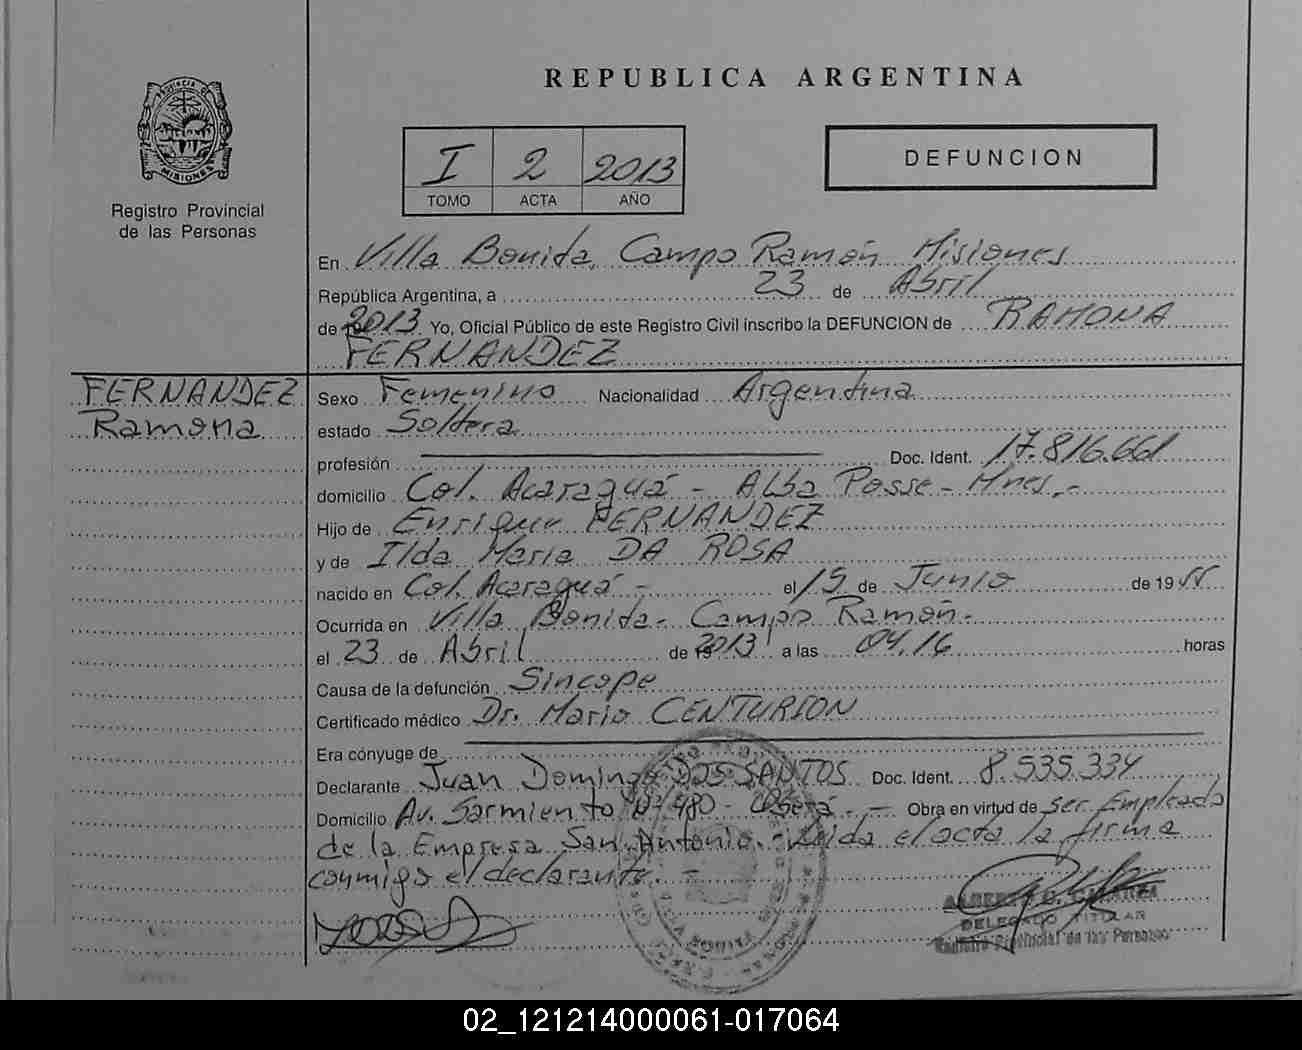 REPUBLICA ARGENTINA
PROVINCIA D
MISIONES
Registro Provincial
de las Personas
I 2 2013
TOMO ACTA AÑO
DEFUNCION
En Villa Bonita, Campo Ramón Misiones
República Argentina, a 23 de Abril
de 2013 Yo, Oficial Público de este Registro Civil inscribo la DEFUNCION de RAMONA
FERNANDEZ
FERNANDEZ
Ramona
Sexo Femenino Nacionalidad Argentina
estado Soltera
profesión Doc. Ident. 17.816.661
domicilio Col. Acaraguá - Alba Posse - Mnes.-
Hijo de Enrique FERNANDEZ
y de Ilda Maria DA ROSA
nacido en Col. Acaraguá - el 15 de Junio de 1955
Ocurrida en Villa Bonita - Campo Ramón.
el 23 de Abril de 2013 a las 04,16 horas
Causa de la defunción Sincope
Certificado médico Dr. Mario CENTURION
Era cónyuge de
Declarante Juan Domingo DOS SANTOS Doc. Ident. 8.535.334
Domicilio Av. Sarmiento Nº 480 - Oberá. - Obra en virtud de ser Empleado
de la Empresa San Antonio. - Leida el acta la firma
conmigo el declarante. -
DELEGADO TITULAR
Registro Provincial de las Personas
02_121214000061-017064